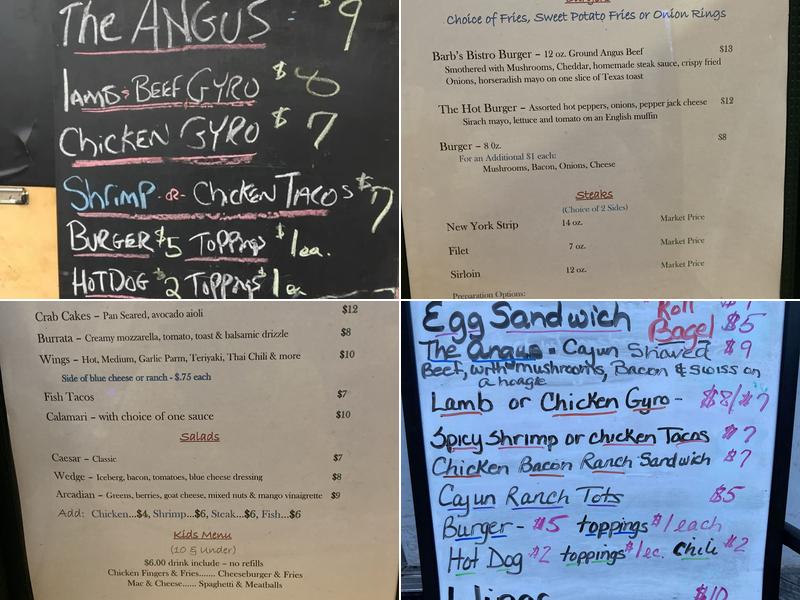 The ANGUS - $9
Lamb & BEEF GYRO $8
CHICKEN GYRO $7
Shrimp -or- CHICKEN TACOS $7
BURGER $5 TOPPINGS $1ea.
HOTDOG $2 TOPPINGS $1ea
Burgers
Choice of Fries, Sweet Potato Fries or Onion Rings
Barb's Bistro Burger – 12 oz. Ground Angus Beef $13
Smothered with Mushrooms, Cheddar, homemade steak sauce, crispy fried
Onions, horseradish mayo on one slice of Texas toast
The Hot Burger – Assorted hot peppers, onions, pepper jack cheese $12
Sirach mayo, lettuce and tomato on an English muffin
Burger – 8 oz. $8
For an Additional $1 each:
Mushrooms, Bacon, Onions, Cheese
Steaks
(Choice of 2 Sides)
New York Strip 14 oz. Market Price
Filet 7 oz. Market Price
Sirloin 12 oz. Market Price
Preparation Options:
Crab Cakes – Pan Seared, avocado aioli $12
Burrata – Creamy mozzarella, tomato, toast & balsamic drizzle $8
Wings – Hot, Medium, Garlic Parm, Teriyaki, Thai Chili & more $10
Side of blue cheese or ranch - $.75 each
Fish Tacos $7
Calamari – with choice of one sauce $10
Salads
Caesar – Classic $7
Wedge – Iceberg, bacon, tomatoes, blue cheese dressing $8
Arcadian – Greens, berries, goat cheese, mixed nuts & mango vinaigrette $9
Add: Chicken...$4, Shrimp...$6, Steak...$6, Fish...$6
Kids Menu
(10 & Under)
$6.00 drink include – no refills
Chicken Fingers & Fries....... Cheeseburger & Fries
Mac & Cheese...... Spaghetti & Meatballs
Egg Sandwich Roll Bagel $5
The Angus - Cajun Shaved $9
Beef, with mushrooms, Bacon & Swiss on
a hoagie
Lamb or Chicken Gyro - $8/$7
Spicy Shrimp or chicken Tacos $7
Chicken Bacon Ranch Sandwich $7
Cajun Ranch Tots $5
Burger - $5 toppings $1 each
Hot Dog $2 toppings $1 ec. Chili $2
Wings $10